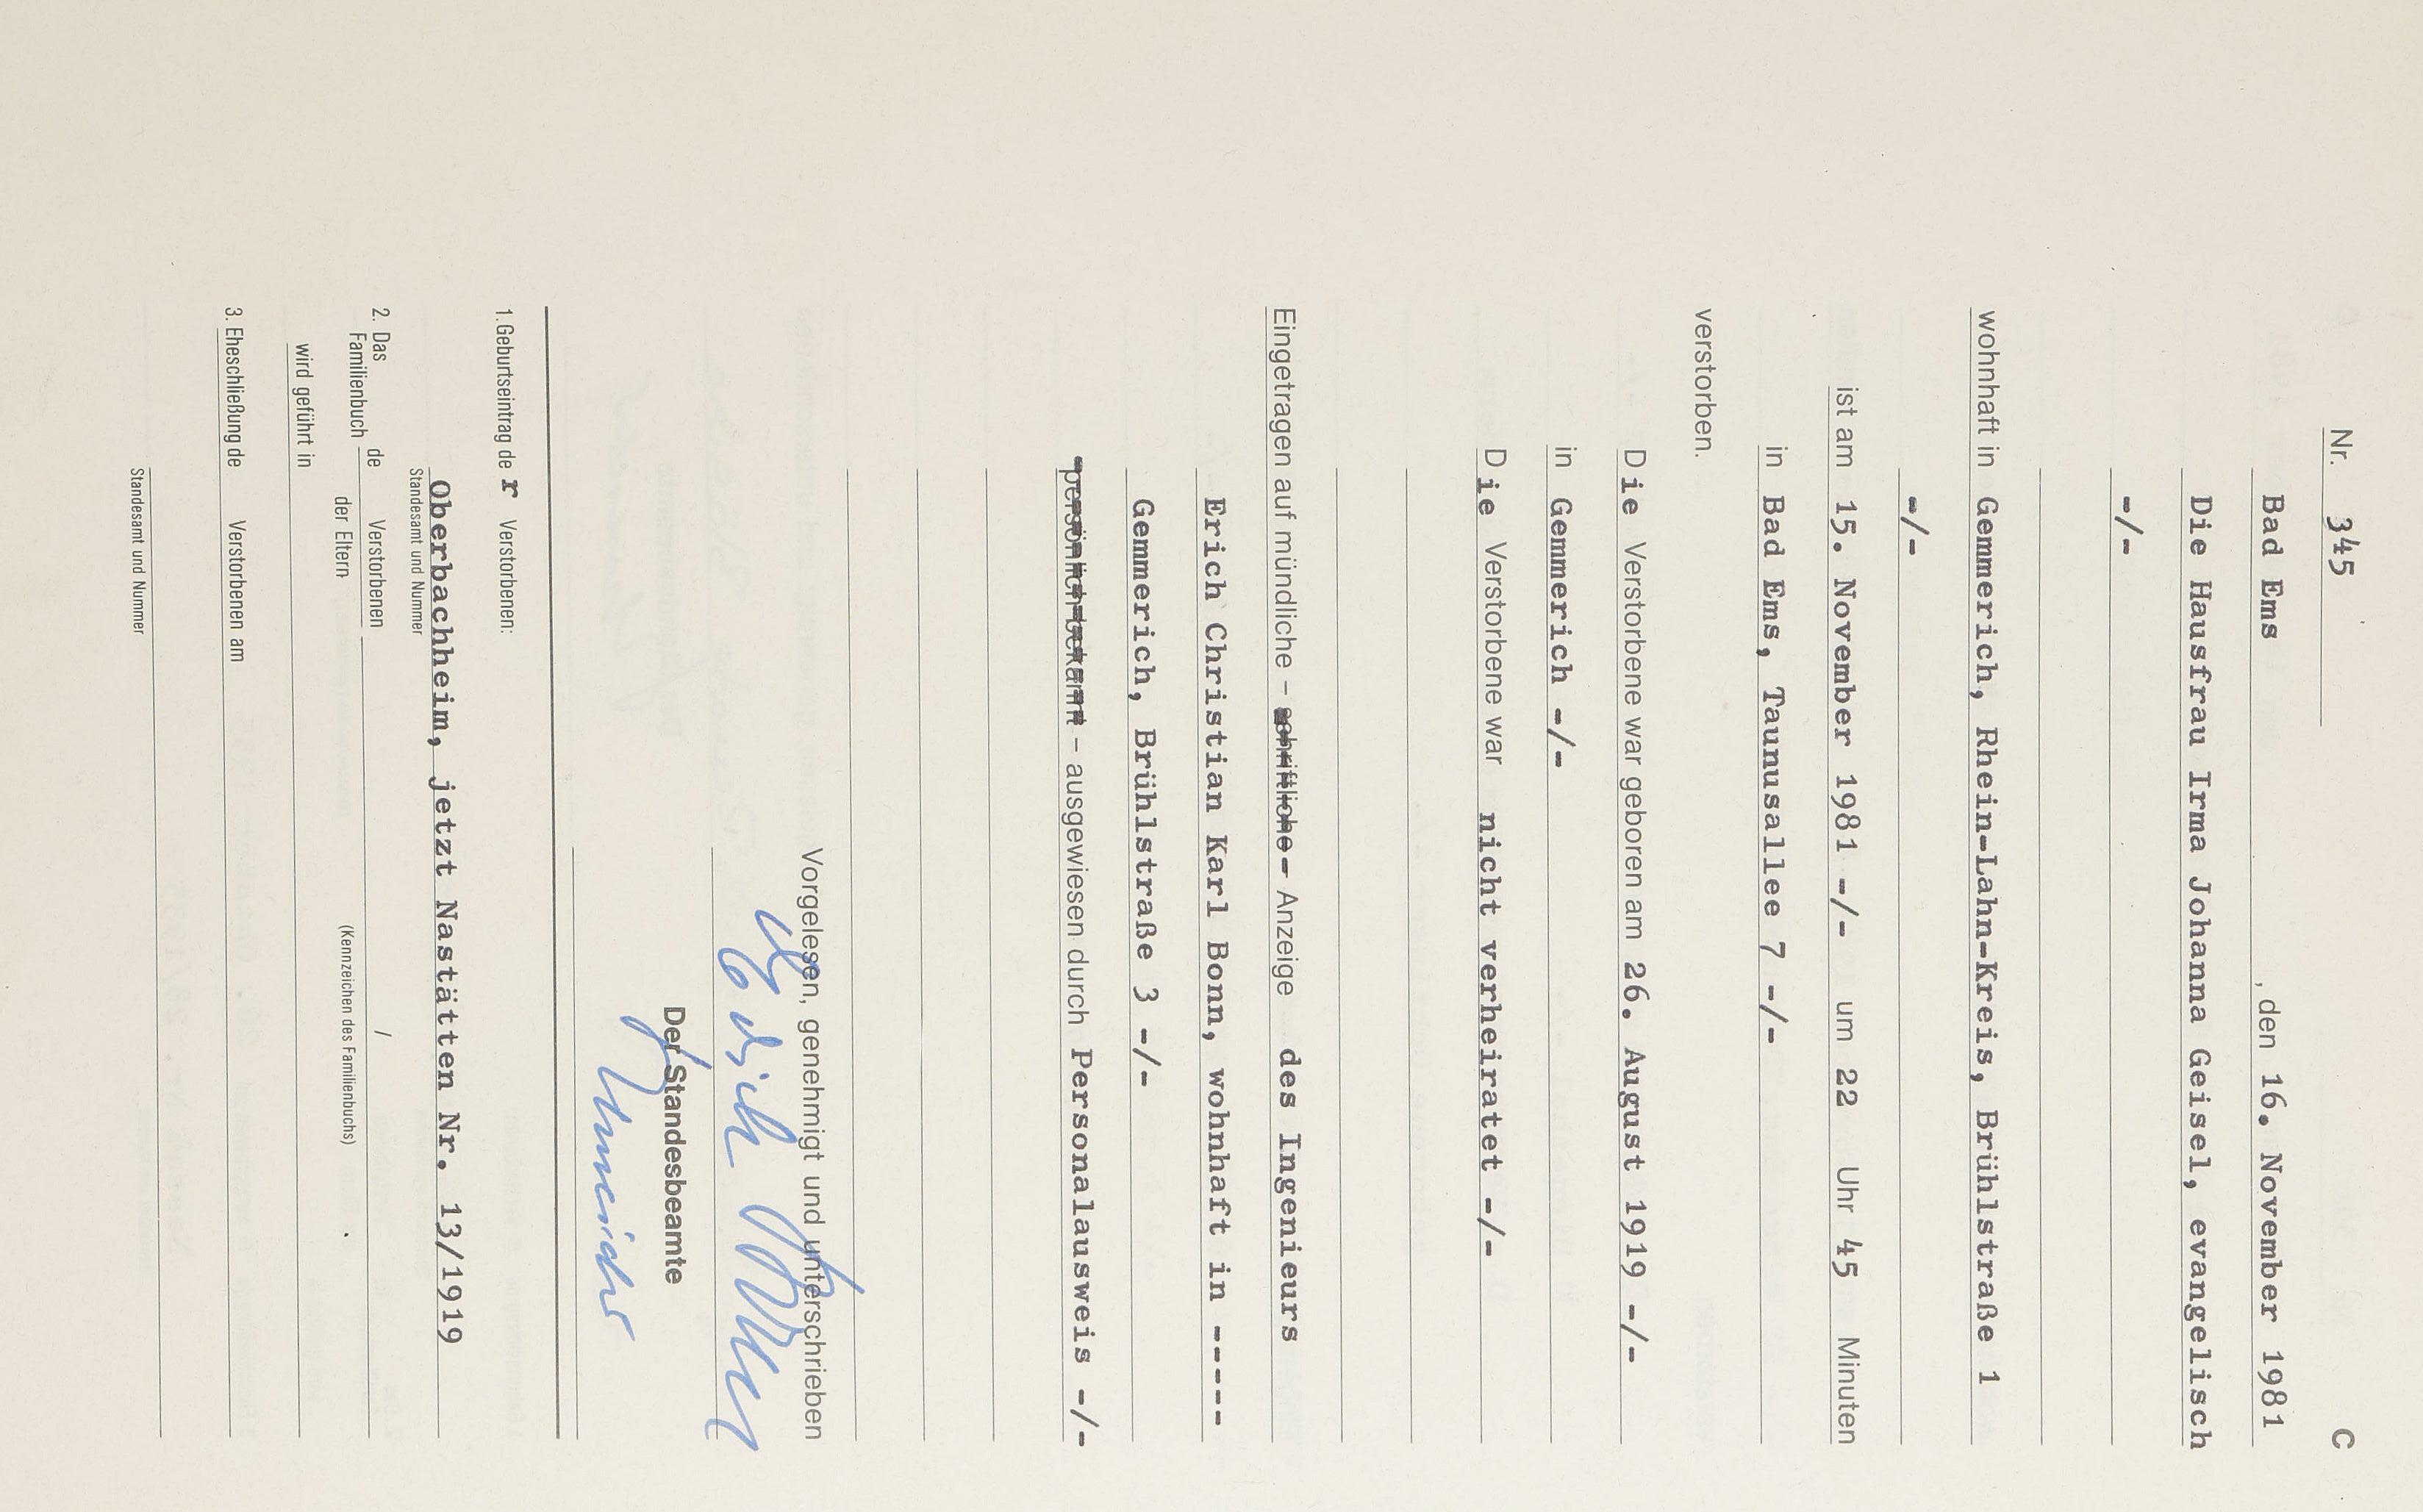 C
Nr. 345
Bad Ems , den 16. November 1981
Die Hausfrau Irma Johanna Geisel, evangelisch
-/-
wohnhaft in Gemmerich, Rhein-Lahn-Kreis, Brühlstraße 1
-/-
ist am 15. November 1981 -/- um 22 Uhr 45 Minuten
in Bad Ems, Taunusallee 7 -/-
verstorben.
Die Verstorbene war geboren am 26. August 1919 -/-
in Gemmerich -/-
Die Verstorbene war nicht verheiratet -/-
Eingetragen auf mündliche – schriftliche – Anzeige des Ingenieurs
Erich Christian Karl Bonn, wohnhaft in -----
Gemmerich, Brühlstraße 3 -/-
persönlich bekannt – ausgewiesen durch Personalausweis -/-
Vorgelesen, genehmigt und unterschrieben
Erich Bonn
Der Standesbeamte
1. Geburtseintrag der Verstorbenen:
Oberbachheim, jetzt Nastätten Nr. 13/1919
Standesamt und Nummer
2. Das Familienbuch de Verstorbenen /
der Eltern (Kennzeichen des Familienbuchs)
wird geführt in
3. Eheschließung de Verstorbenen am
Standesamt und Nummer